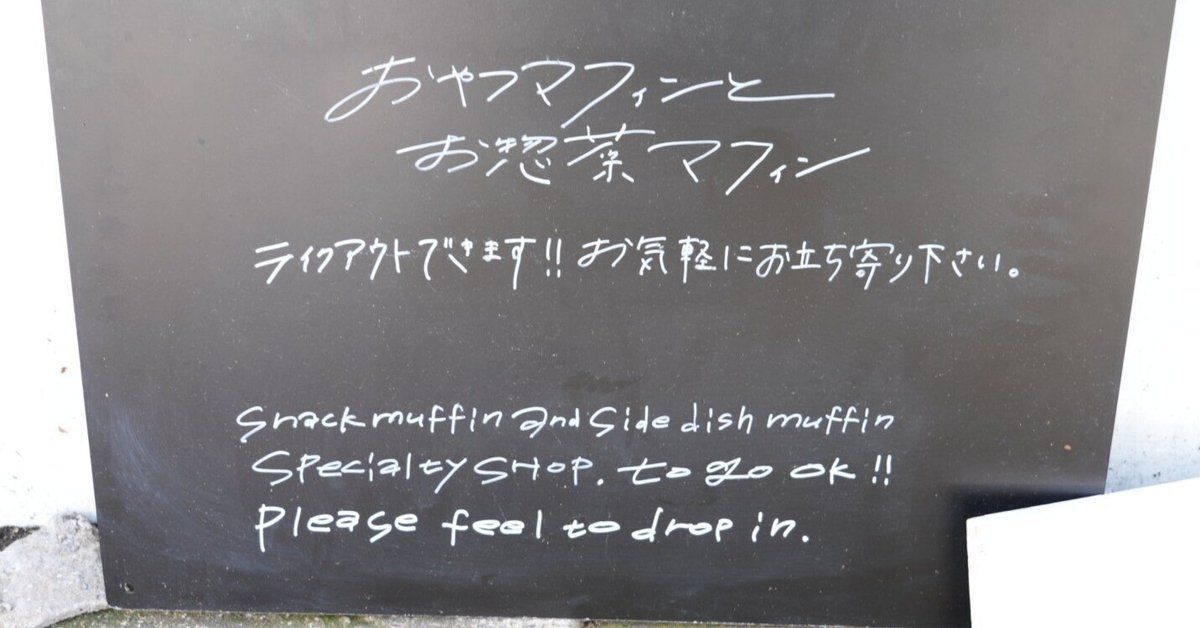 おやつマフィンと
お惣菜マフィン
テイクアウトできます!! お気軽にお立ち寄り下さい。
Snack muffin and Side dish muffin
Specialty SHOP. to go ok!!
please feel to drop in.